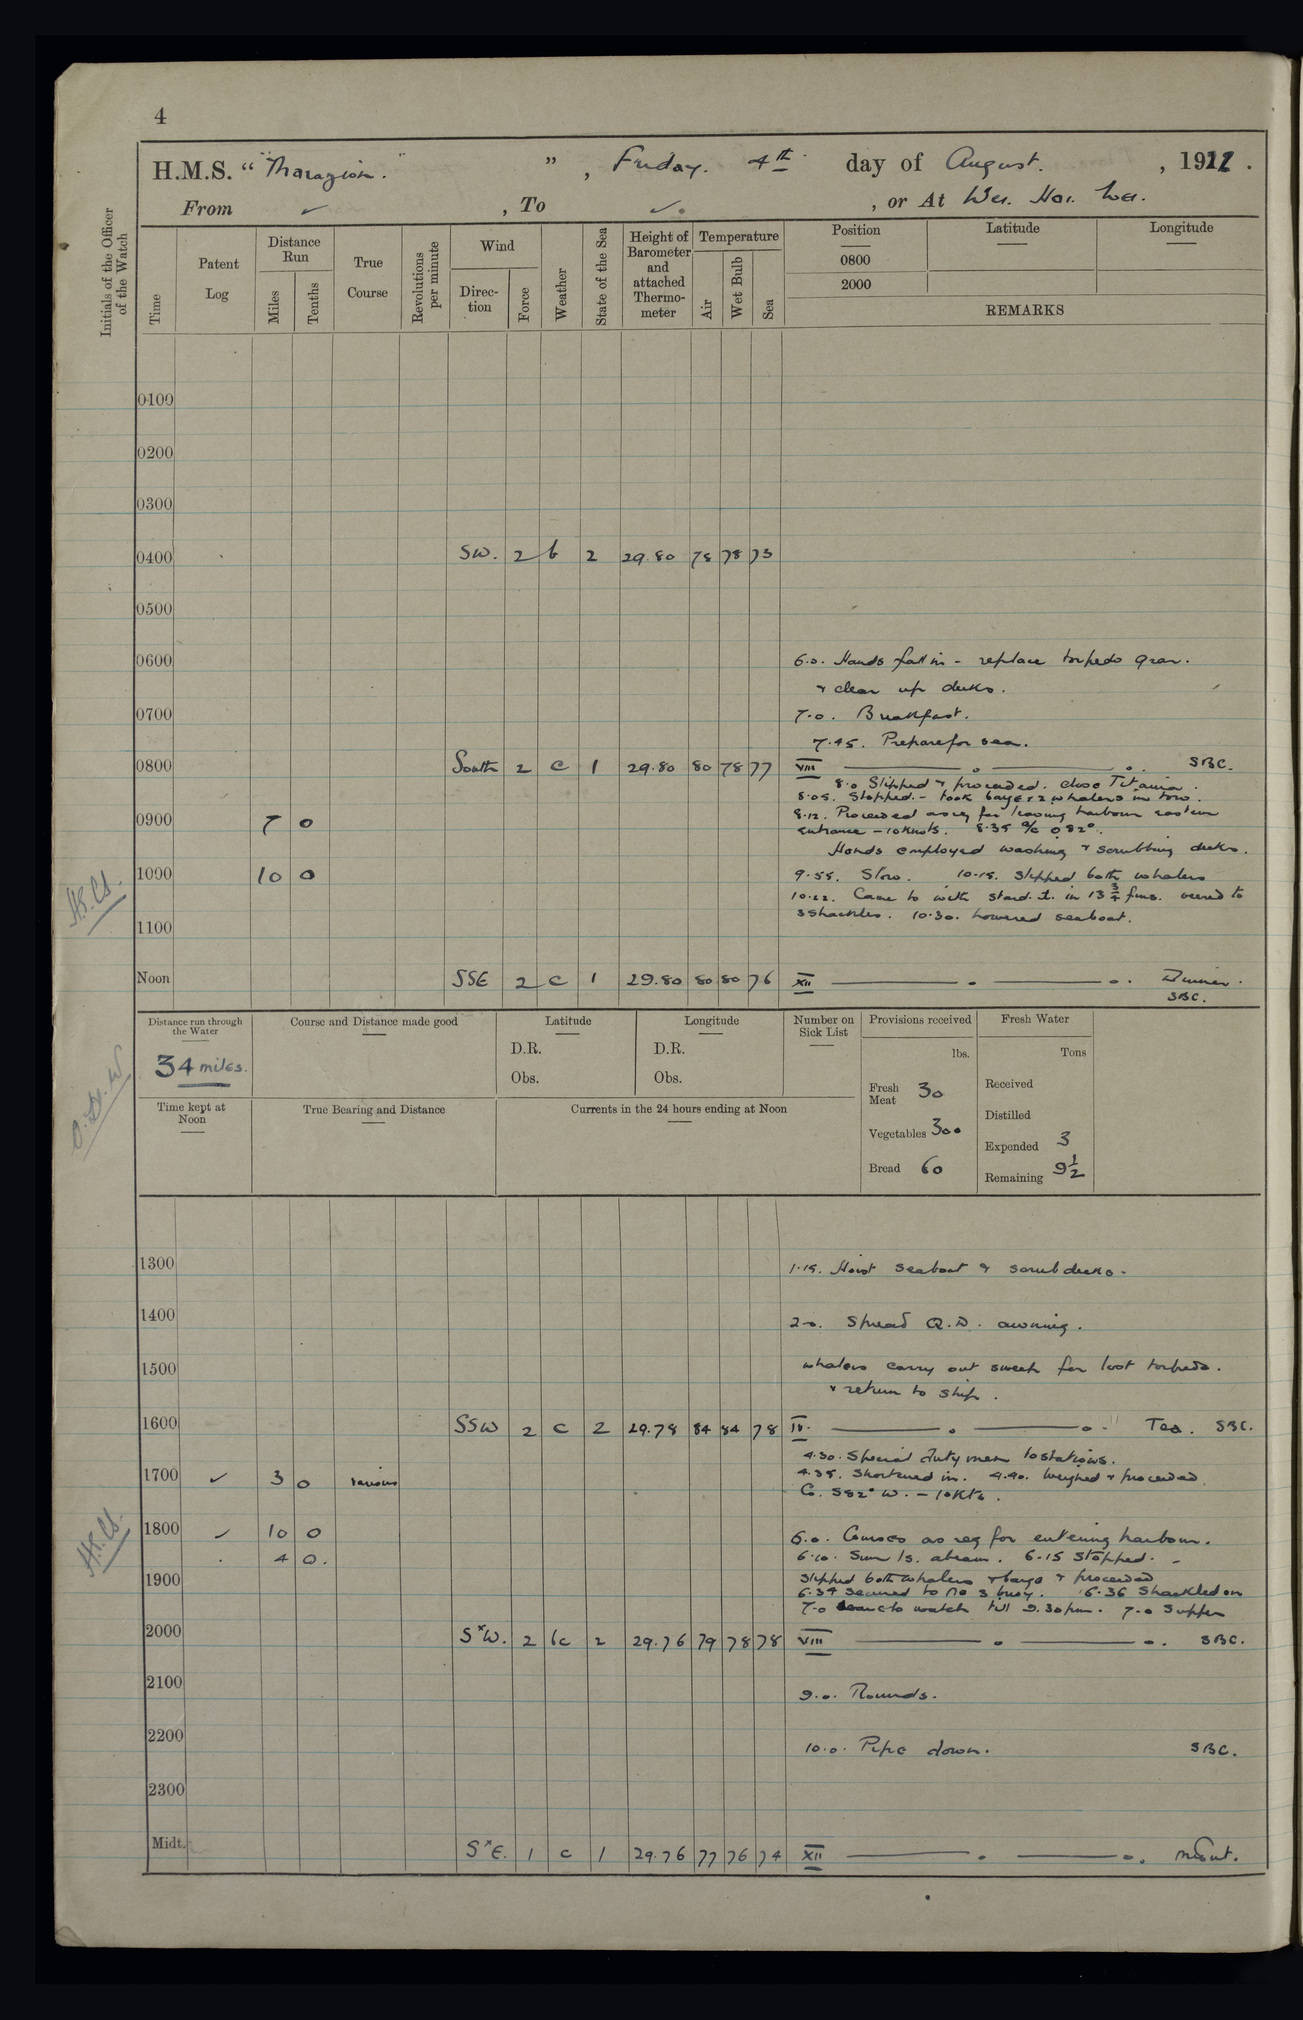 4
H.M.S. "Marazion." , Friday. 4th day of August. , 1922.
From ✓ , To ✓. , or At Wei. Hai. Wei.
Initials of the Officer of the Watch
Time
Patent Log
Distance Run
Miles
Tenths
True Course
Revolutions per minute
Wind
Direction
Force
Weather
State of the Sea
Height of Barometer and attached Thermometer
Temperature
Air
Wet Bulb
Sea
Position
Latitude
Longitude
0800
2000
REMARKS
0100
0200
0300
0400 SW. 2 b 2 29.80 78 78 73
0500
0600 6.0. Hands fall in - replace torpedo gear.
& clear up decks.
0700 7.0. Breakfast.
7.45. Prepare for sea.
0800 South 2 c 1 29.80 80 78 77 VIII SBC.
8.0 Slipped & proceeded. close Titania.
8.05. Stopped. - took barge & 2 whalers in tow.
0900 7 0 8.12. Proceeded as req for leaving harbour eastern
entrance - 10 knots. 8.35 a/c 082°.
Hands employed washing & scrubbing decks.
1000 10 0 9.55. Slow. 10.15. Slipped both whalers
H.C.S.
10.22. Came to with stard. in 13 3/4 fms. veered to
3 shackles. 10.30. Lowered seaboat.
1100
Noon SSE 2 c 1 29.80 80 80 76 XII Dinner.
SBC.
Distance run through the Water
34 miles.
Course and Distance made good
Latitude
D.R.
Obs.
Longitude
D.R.
Obs.
Number on Sick List
Provisions received
lbs.
Fresh Meat 30
Vegetables 300
Bread 60
Fresh Water
Tons
Received
Distilled
Expended 3
Remaining 9 1/2
Time kept at Noon
True Bearing and Distance
Currents in the 24 hours ending at Noon
1300 1.15. Hoist seaboat & scrub decks.
1400 2.0. Spread Q.D. awning.
1500 whalers carry out sweep for lost torpedo.
& return to ship.
1600 SSW 2 c 2 29.78 84 84 78 IV. Tea. SBC.
4.30. Special duty men to stations.
1700 ✓ 3 0 various 4.35. Shortened in. 4.40. Weighed & proceeded
Co. S82°W. - 10 Kts.
1800 ✓ 10 0 6.0. Courses as req for entering harbour.
4 0. 6.10. Sun Is. abeam. 6.15 Stopped.
1900 Slipped both whalers & barge & proceeded
6.34 Secured to No 3 buoy. 6.36 Shackled on
7.0 to watch till 9.30pm. 7.0 Supper
2000 S×W. 2 bc 2 29.76 79 78 78 VIII SBC.
2100 9.0. Rounds.
2200 10.0. Pipe down. SBC.
2300
Midt. S×E. 1 c 1 29.76 77 76 74 XII